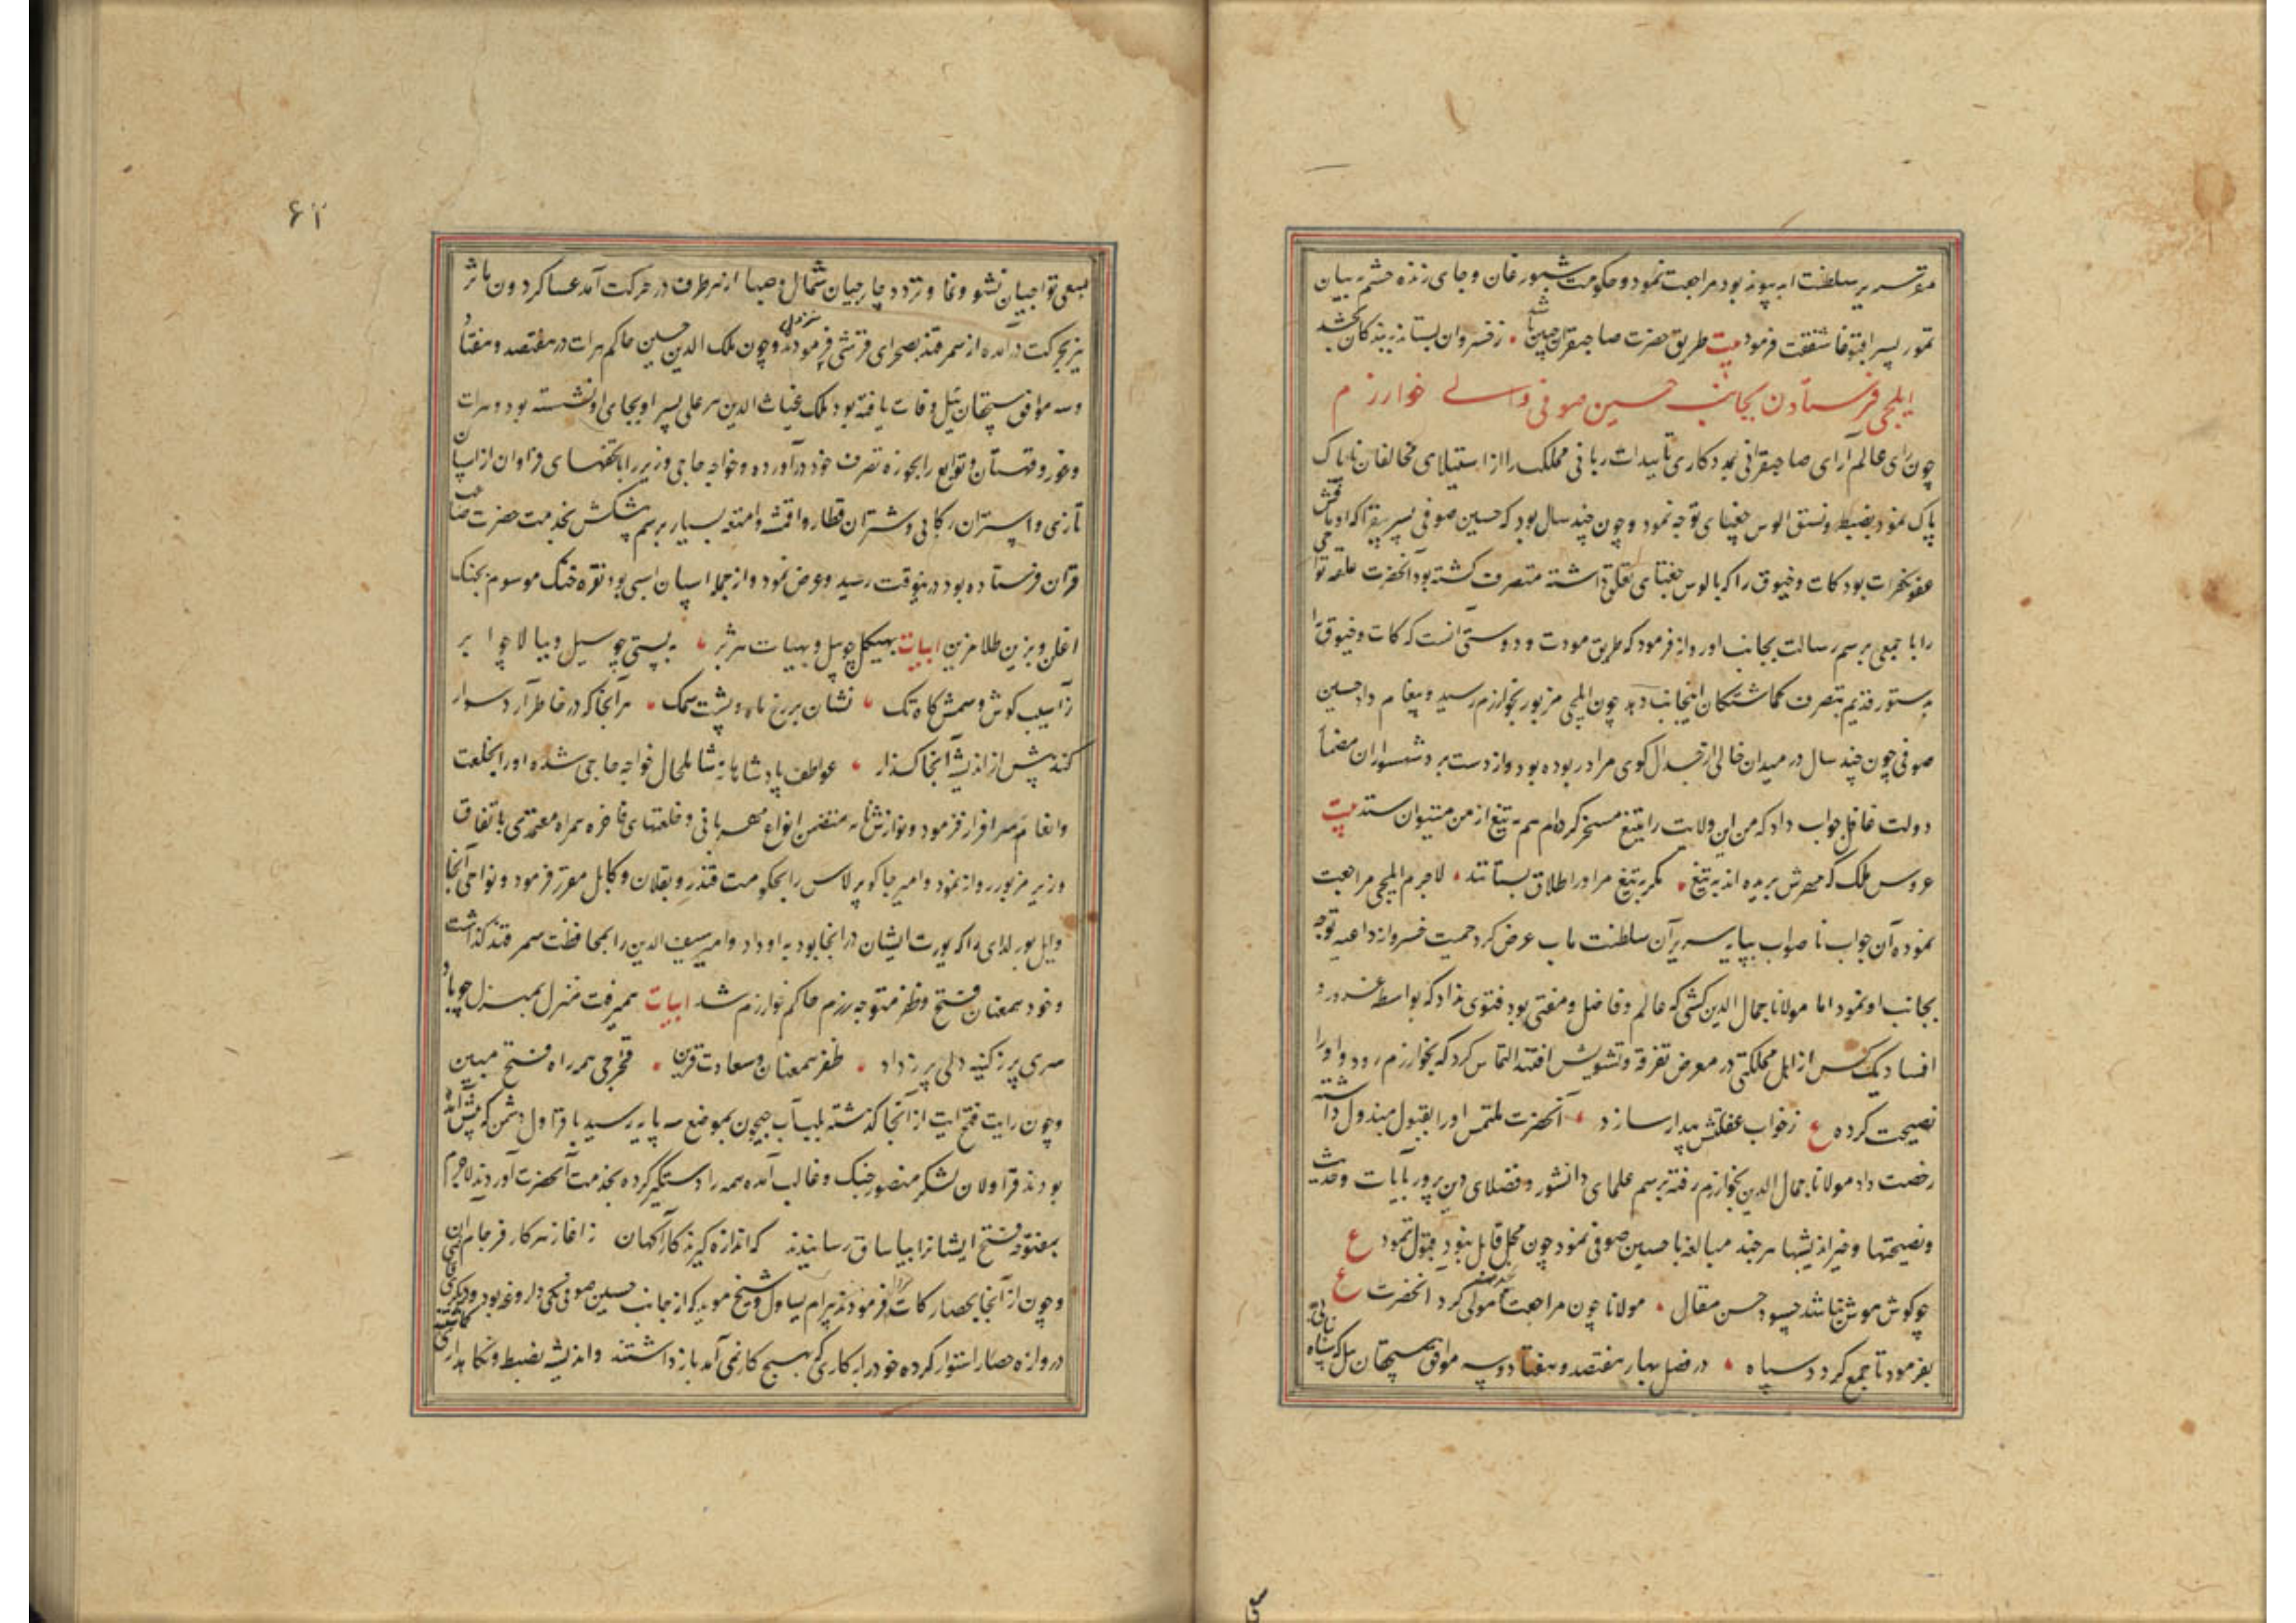 سریر سلطنت ابد پیوند بود مراجعت نمود و حکومت شبورغان و جای زنده حشم به بیان
تمور پسر آقبوقا شفقت فرمود بیت طریق حضرت صاحبقران چنین باشد ز خسروان بستاند به بندکان بخشد
ایلچی فرستادن بجانب حسین صوفی والی خوارزم
چون رای عالم آرای صاحبقرانی بمددکاری تأییدات ربانی مملکت را از استیلای مخالفان ناپاک
پاک نمود بضبط و نسق الوس جغتای توجه نمود و چون چند سال بود که حسین صوفی پسر
بود کات و خیوق را که بالوس جغتای تعلق داشته متصرف کشته بود آنحضرت علقه تواجی
را با جمعی برسم رسالت بجانب او روانه فرمود که طریق مودت و دوستی آنست که کات و خیوق را
بدستور قدیم بتصرف کماشتکان اینجانب دهد چون ایلچی مزبور بخوارزم رسید و پیغام داد حسین
صوفی چون چند سال در میدان خالی از جدال کوی مراد ربوده بود و از دست برد شهسواران مضمار
دولت غافل جواب داد که من این ولایت را بتیغ مسخر کرده‌ام هم به تیغ از من میتوان ستد بیت
عروس ملک که مهرش بریده اند به تیغ مکر به تیغ مر او را طلاق بستانند لاجرم ایلچی مراجعت
نموده آن جواب ناصواب بپایه سریر آن سلطنت مآب عرض کرد حمیت خسروانه داعیه توجه
بجانب او نمود اما مولانا جمال الدین کشی که عالم و فاضل و مفتی بود فتوی نداد که بواسطه غرور و
افساد یک کس از اهل مملکتی در معرض تفرقه و تشویش افتد التماس کرد که بخوارزم رود و او را
نصیحت کرده ع ز خواب غفلتش بیدار سازد آنحضرت ملتمس او را بقبول مبذول داشته
رخصت داد مولانا جمال الدین بخوارزم رفته برسم علمای دانشور و فضلای دین پرور بآیات و حدیث
و نصیحتها و خیراندیشیها هر چند مبالغه با حسین صوفی نمود چون محل قابل نبود قبول ننمود ع
چو کوش هوش نباشد چه سود حسن مقال مولانا چون مراجعت کرد آنحضرت ع
بفرمود تا جمع کردد سپاه در فصل بهار هفتصد و هفتاد و سه موافق سیچقان ییل که سپاه
بسعی تواجیان نشو و نما و تردد جارجیان شمال و صبا از هر طرف در حرکت آمد عساکر کردون مآثر
نیز بحرکت درآمده از سمرقند بصحرای قرشی نزول فرمودند و چون ملک الدین حسین حاکم هرات در هفتصد و هفتاد
و سه موافق سیچقان ئیل وفات یافته بود ملک غیاث الدین پیر علی پسر او بجای او نشسته بود و هرات
و غور و قهستان و توابع را بحوزه تصرف خود درآورده و خواجه حاجی وزیر را با تحفهای فراوان از اسپان
تازی و استران رکابی و شتران قطار و اقمشه و امتعه بسیار برسم پیشکش بخدمت حضرت صاحب
قران فرستاده بود درینوقت رسید و عرض نمود و از جمله اسپان اسبی بود نقره خنک موسوم بخنک
اغلن و بزین طلا مزین ابیات بهیکل چو پیل و بهیبات هژبر به پستی چو سیل و ببالا چو ابر
ز آسیب کوش و سمش کاه تک نشان بر رخ ماه و پشت سمک هر آنجا که در خاطر آرد سوار
کند پیش از اندیشه آنجا کذار عواطف پادشاهانه شامل حال خواجه حاجی شده او را بخلعت
و انعام سرافراز فرمود و نوازشنامه متضمن انواع مهربانی و خلعتهای فاخره همراه معتمدی باتفاق
وزیر مزبور روانه نمود و امیر جاکو برلاس را بحکومت قندز و بقلان و کابل مقرر فرمود و نواحی آنجا
و ایل بورلدای را که یورت ایشان در آنجا بود به او داد و امیر سیف الدین را بمحافظت سمرقند کذاشت
و خود همعنان فتح و ظفر متوجه رزم حاکم خوارزم شد ابیات همیرفت منزل بمنزل چو باد
سری پر ز کینه دلی پر ز داد ظفر همعنان و سعادت قرین همراه فتح مبین
و چون رایت فتح آیت از آنجا کذشته بلب آب جیحون بموضع سه پایه رسید با قراول دشمن که پیش آمده
بودند قراولان لشکر منصور جنک و غالب آمده همه را دستگیر کرده بخدمت آنحضرت آوردند لاجرم
فتح ایشانرا بیاساق رسانیدند که اندازه کیرند کارآکهان ز آغاز هر کار فرجام آن
و چون از آنجا بحصار کات فرمودند بیرام یساول و شیخ موید که از جانب حسین صوفی یکی داروغه بود و دیکری
دروازه حصار استوار کرده خود را به کاری که هیچ کار نمی آمد باز داشتند و اندیشه بضبط و نکاهداری
۶۲